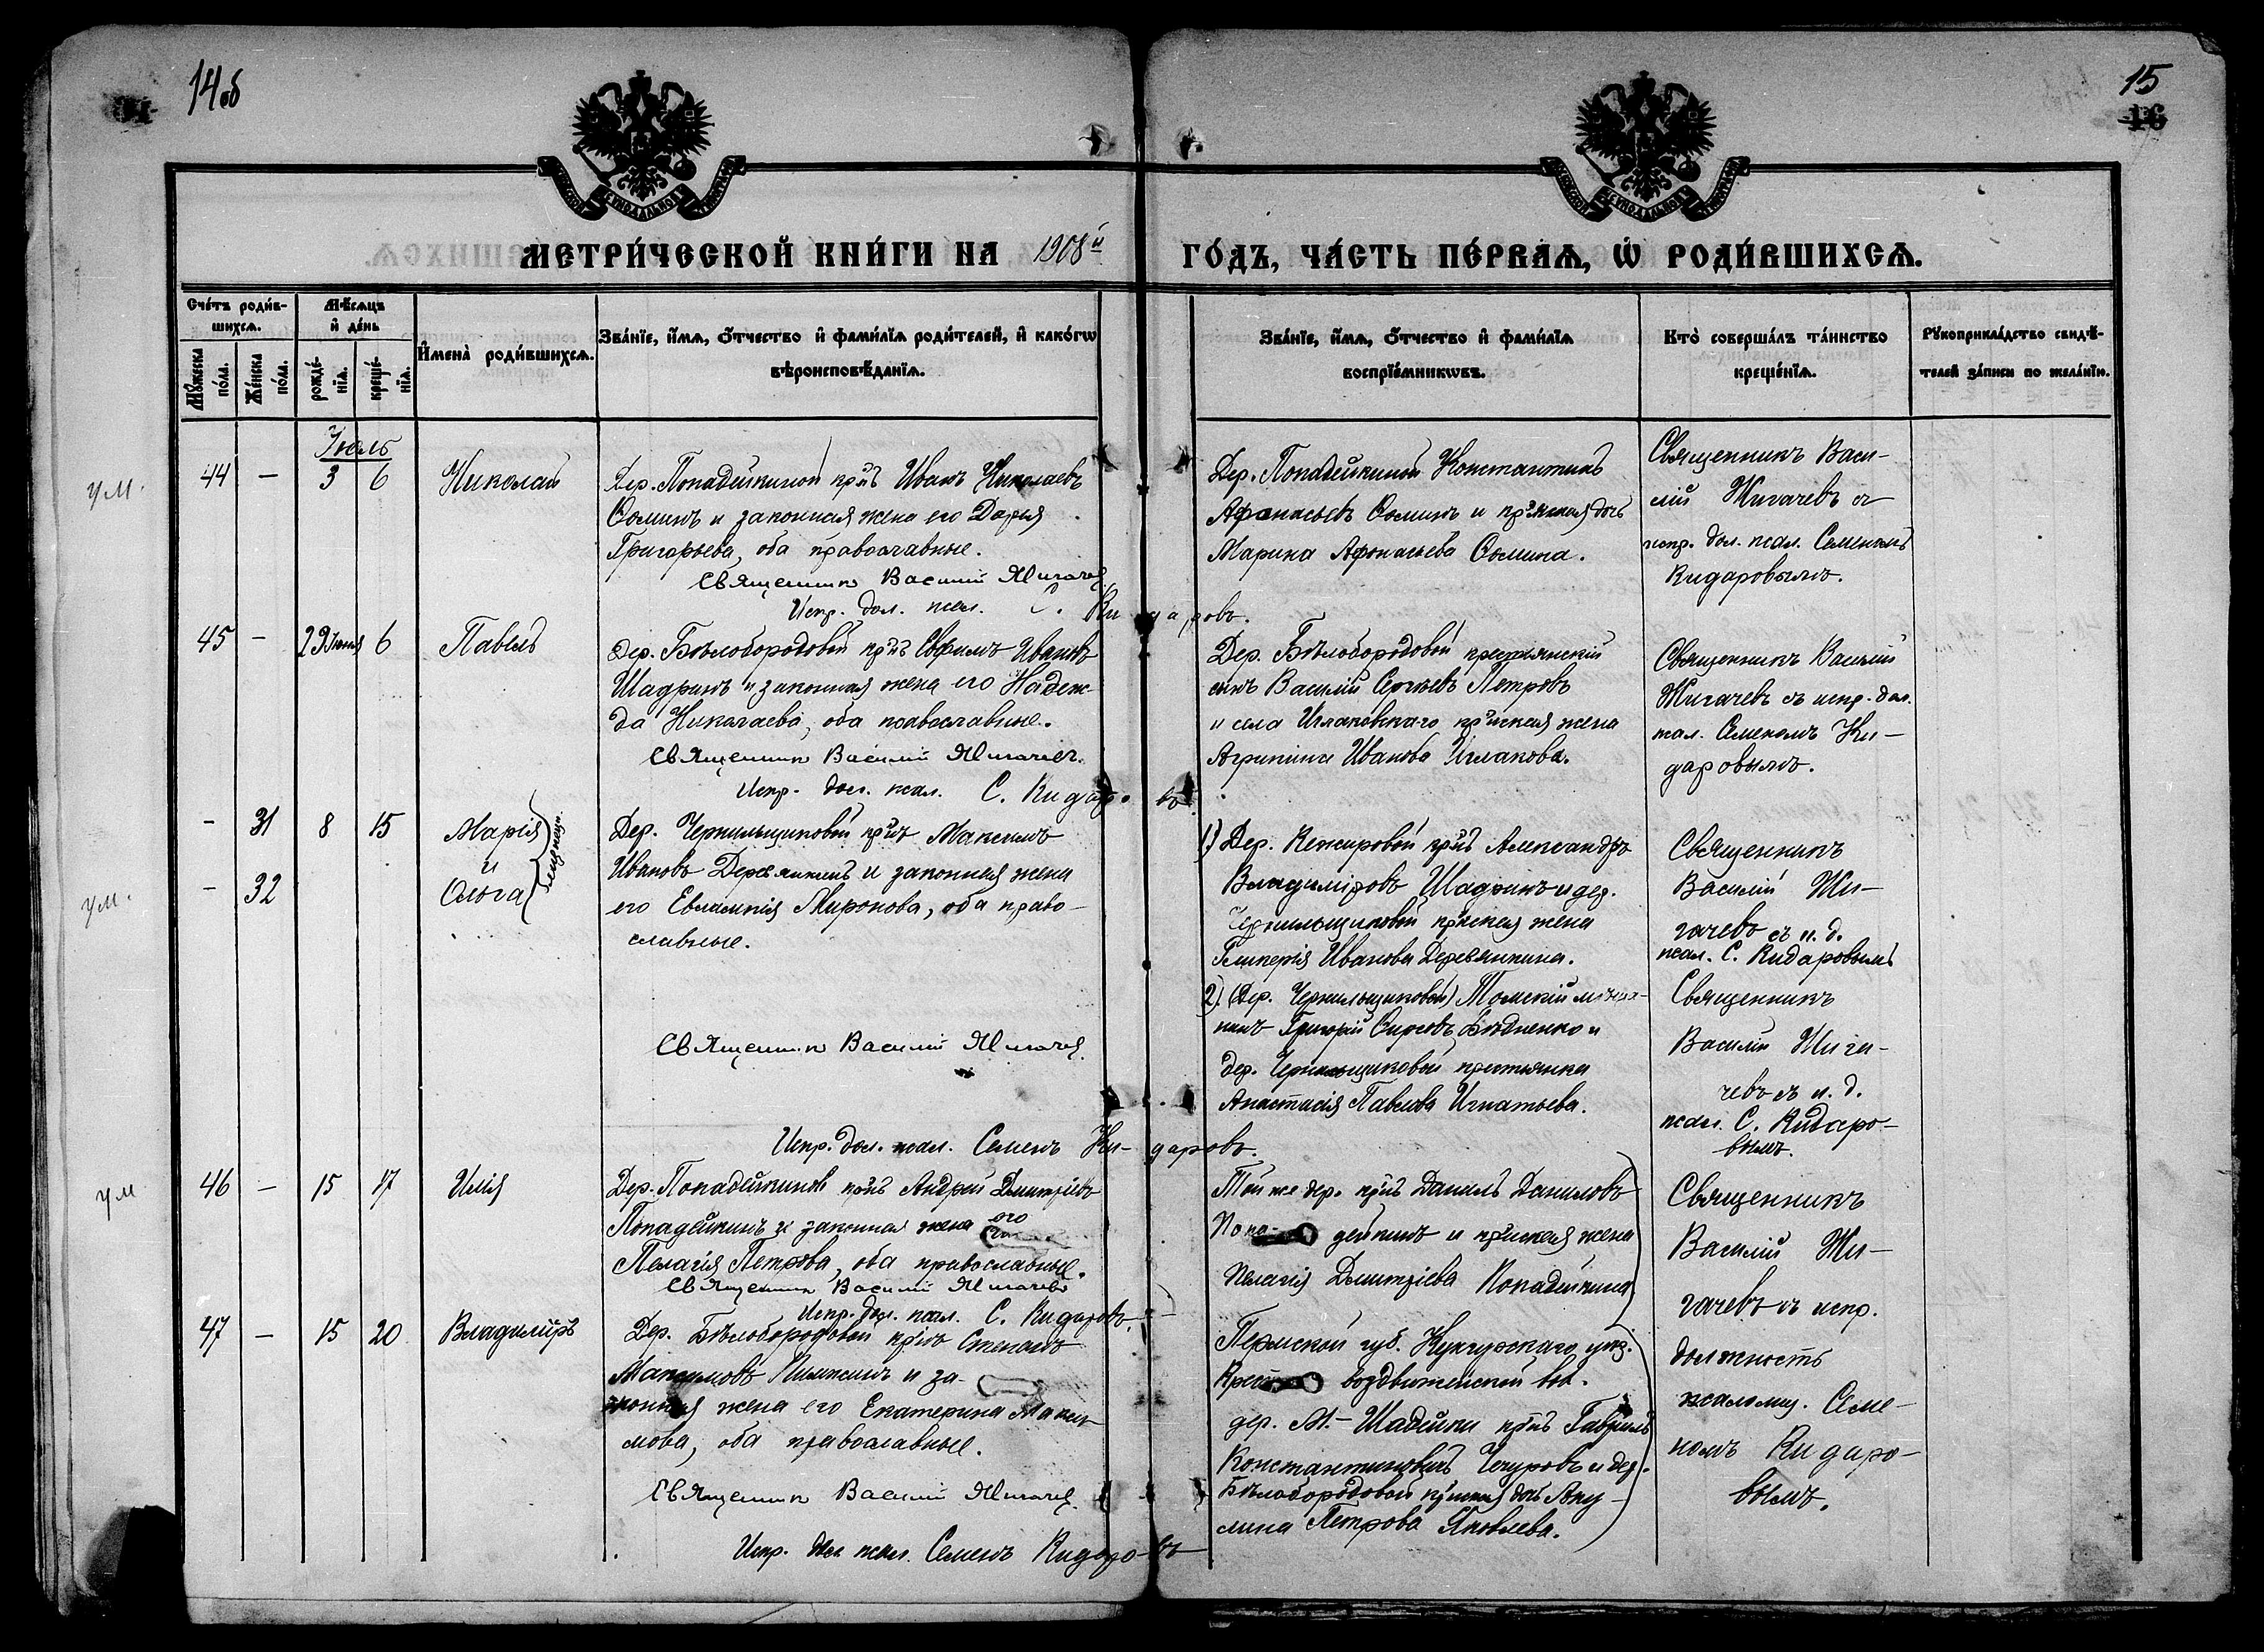 14об
15
16
МЕТРИ́ЧЕСКОЙ КНИ́ГИ НА 1908й ГО́ДЪ, ЧА́СТЬ ПЕ́РВАѦ, Ѡ҆ РОДИ́ВШИХСѦ.
Сче́тъ роди́в-
шихсѧ.
Мꙋ́жеска по́ла.
Же́нска по́ла.
Мѣ́сѧцъ
и҆ де́нь
рожде́-
нїѧ.
креще́-
нїѧ.
И҆мена̀ роди́вшихсѧ.
Зва́нїе, и҆́мѧ, ѻ҆́тчество и҆ фами́лїѧ роди́телей, и҆ како́гѡ
вѣроисповѣ́данїѧ.
Зва́нїе, и҆́мѧ, ѻ҆́тчество и҆ фами́лїѧ
воспрїе́мникѡвъ.
Кто̀ соверша́лъ та́инство
креще́нїѧ.
Рꙋкоприкла́дство свидѣ́-
телей за́писи по жела́нїю.
Іюль
ум.
44 — 3 6
Николай
Дер. Попадейкиной кр̃нъ Иванъ Николаевъ
Ѳоминъ и законная жена его Дарья
Григорьева, оба православные.
Священникъ Василий Жигачев
Испр. дол. псал. С. Кидаровъ.
Дер. Попадейкиной Константинъ
Афанасьевъ Ѳоминъ и кр̃нская дочь
Марина Афонасьева Ѳомина.
Священникъ Васи-
лій Жигачевъ съ
испр. дол. псал. Семеномъ
Кидаровымъ.
45 — 29 іюня 6
Павелъ
Дер. Бѣлобородовой кр̃нъ Евфимъ Ивановъ
Шадринъ и законная жена его Надеж-
да Николаева, оба православные.
Священникъ Василий Жигачевъ.
Испр. дол. псал. С. Кидаровъ
Дер. Бѣлобородовой крестьянскій
сынъ Василій Сергѣевъ Петровъ
и села Иглаковскаго кр̃нская жена
Агрипина Иванова Иглакова.
Священникъ Василій
Жигачевъ съ испр. дол.
псал. Семеномъ Ки-
даровымъ.
ум.
— 31 8 15
— 32
Марія
и
Ольга
близнецы.
Дер. Чернильщиковой кр̃нъ Максимъ
Ивановъ Деревянкинъ и законная жена
его Евлампія Миронова, оба право-
славные.
Священникъ Василий Жигачев.
Испр. дол. псал. Семенъ Ки-даровъ.
1) Дер. Кижировой кр̃нъ Александръ
Владиміровъ Шадринъ и дер.
Чернильщиковой кр̃нская жена
Гликерія Иванова Деревянкина.
Священникъ
Василій Жи-
гачевъ съ и. д.
псал. С. Кидаровымъ
2) (Дер. Чернильщиковой) Томскій мѣща-
нинъ Григорій Бѣдненко и
дер. Чернильщиковой крестьянка
Анастасія Павлова Игнатьева.
Священникъ
Василій Жига-
чевъ съ и. д.
псал. С. Кидаро-
вымъ.
ум
46 — 15 17
Илія
Дер. Попадейкиной кр̃нъ Андрей Дмитріевъ
Попадейкинъ и законная жена его
Пелагія Петрова, оба православные.
Священникъ Василий Жигачевъ
Испр. дол. псал. С. Кидаровъ.
Той же дер. кр̃нъ Данилъ Даниловъ
Попа- дейкинъ и кр̃нская жена
Пелагія Дмитріева Попадейкина
Священникъ
Василій Жи-
гачевъ съ испр.
должность
псаломщ. Семе-
номъ Кидаро-
вымъ.
47 — 15 20
Владиміръ
Дер. Бѣлобородовой кр̃нъ Степанъ
Максимовъ и за-
конная жена его Екатерина Макси-
мова, оба православные.
Священникъ Василий Жигачев.
Испр. дол псал. Семенъ Кидаро-въ
Пермской губ. Кунгурскаго уѣз.
Кресто воздвиженской вол.
дер. М.-Шадейки кр̃нъ Гавріилъ
Константиновъ и дер.
Бѣлобородовой кр̃нская дочь Аку-
лина Петрова Яковлева.